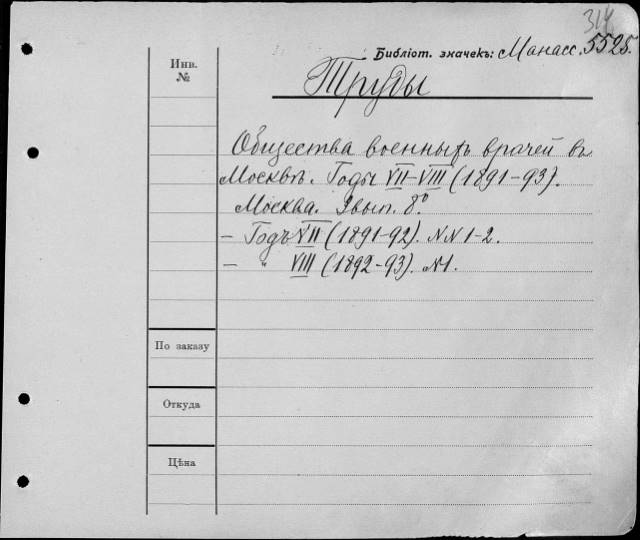 314
Библіот. значекъ: Манасс. 5525.
Инв.
№
Труды
Общества военныхъ врачей въ
Москвѣ. Годъ VII–VIII (1891–93).
Москва. вып. 8º.
– Годъ VII (1891–92). NN 1–2.
– " VIII (1892–93). N1.
По заказу
Откуда
Цѣна